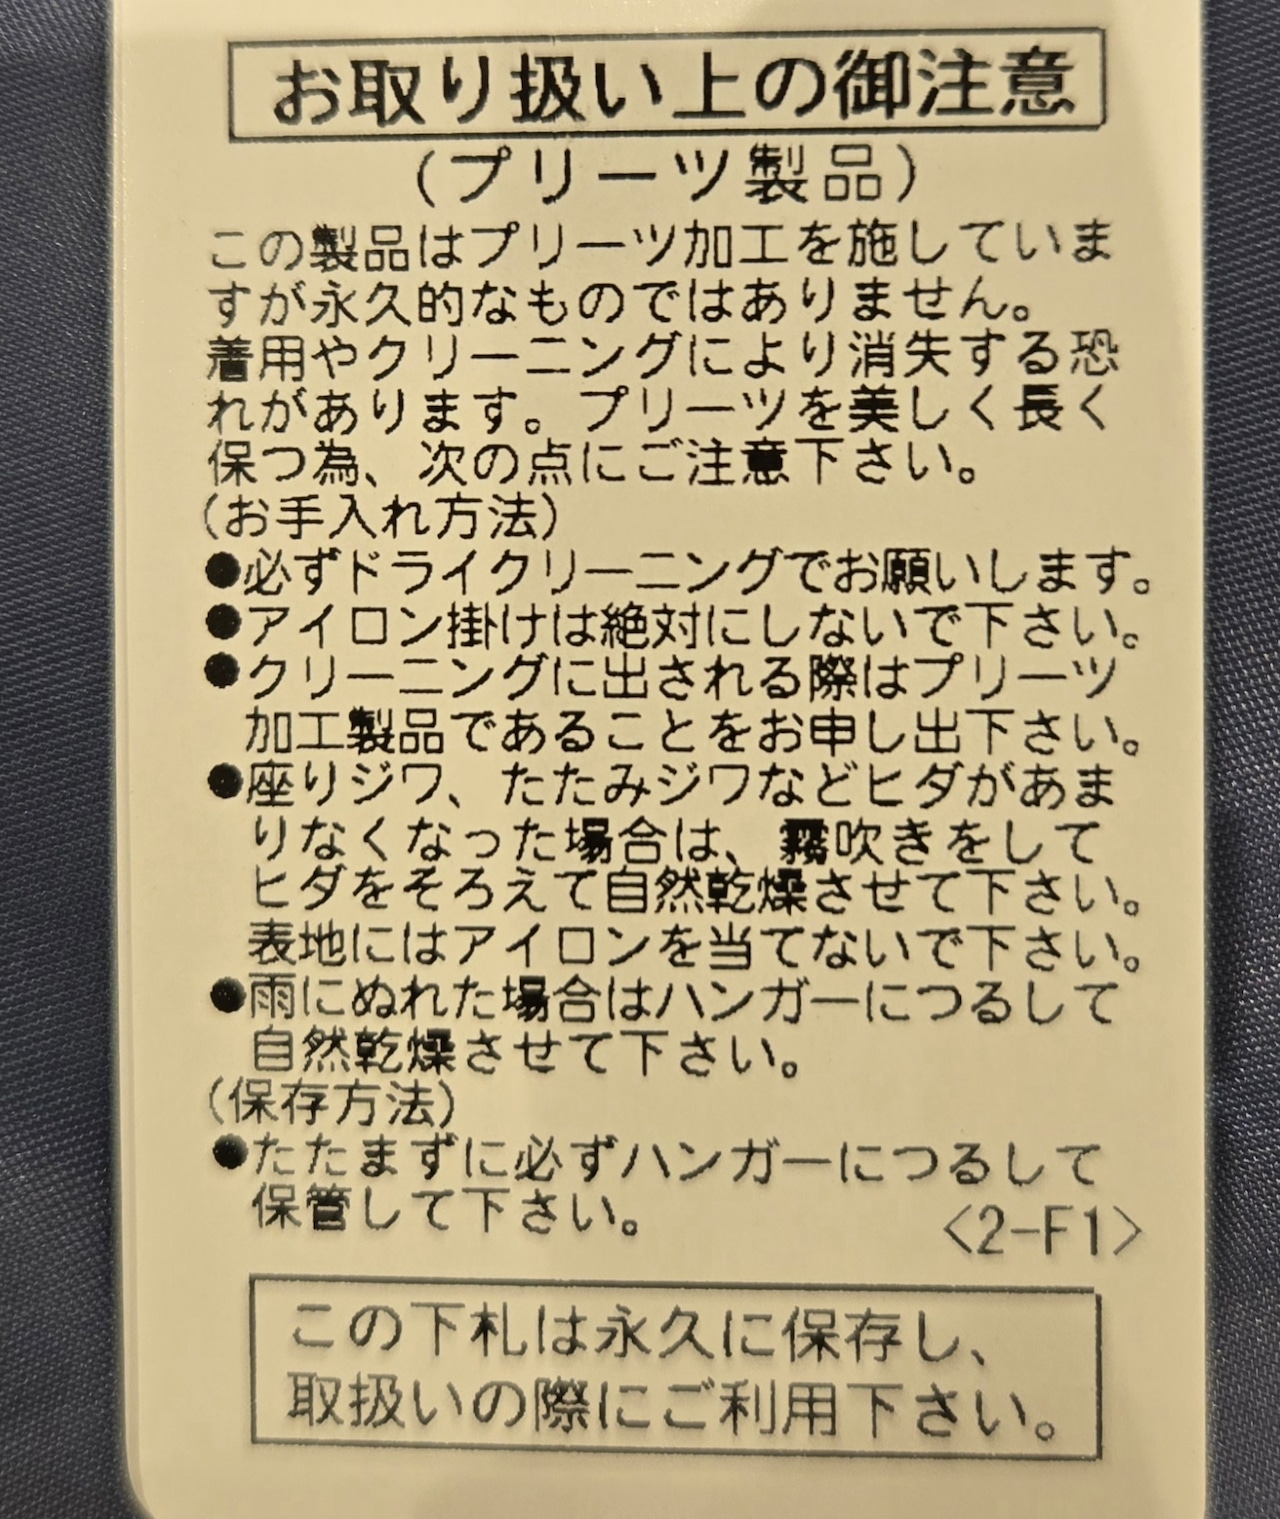 お取り扱い上の御注意
(プリーツ製品)
この製品はプリーツ加工を施していま
すが永久的なものではありません。
着用やクリーニングにより消失する恐
れがあります。プリーツを美しく長く
保つ為、次の点にご注意下さい。
(お手入れ方法)
●必ずドライクリーニングでお願いします。
●アイロン掛けは絶対にしないで下さい。
●クリーニングに出される際はプリーツ
加工製品であることをお申し出下さい。
●座りジワ、たたみジワなどヒダがあま
りなくなった場合は、霧吹きをして
ヒダをそろえて自然乾燥させて下さい。
表地にはアイロンを当てないで下さい。
●雨にぬれた場合はハンガーにつるして
自然乾燥させて下さい。
(保存方法)
●たたまずに必ずハンガーにつるして
保管して下さい。
<2-F1>
この下札は永久に保存し、
取扱いの際にご利用下さい。